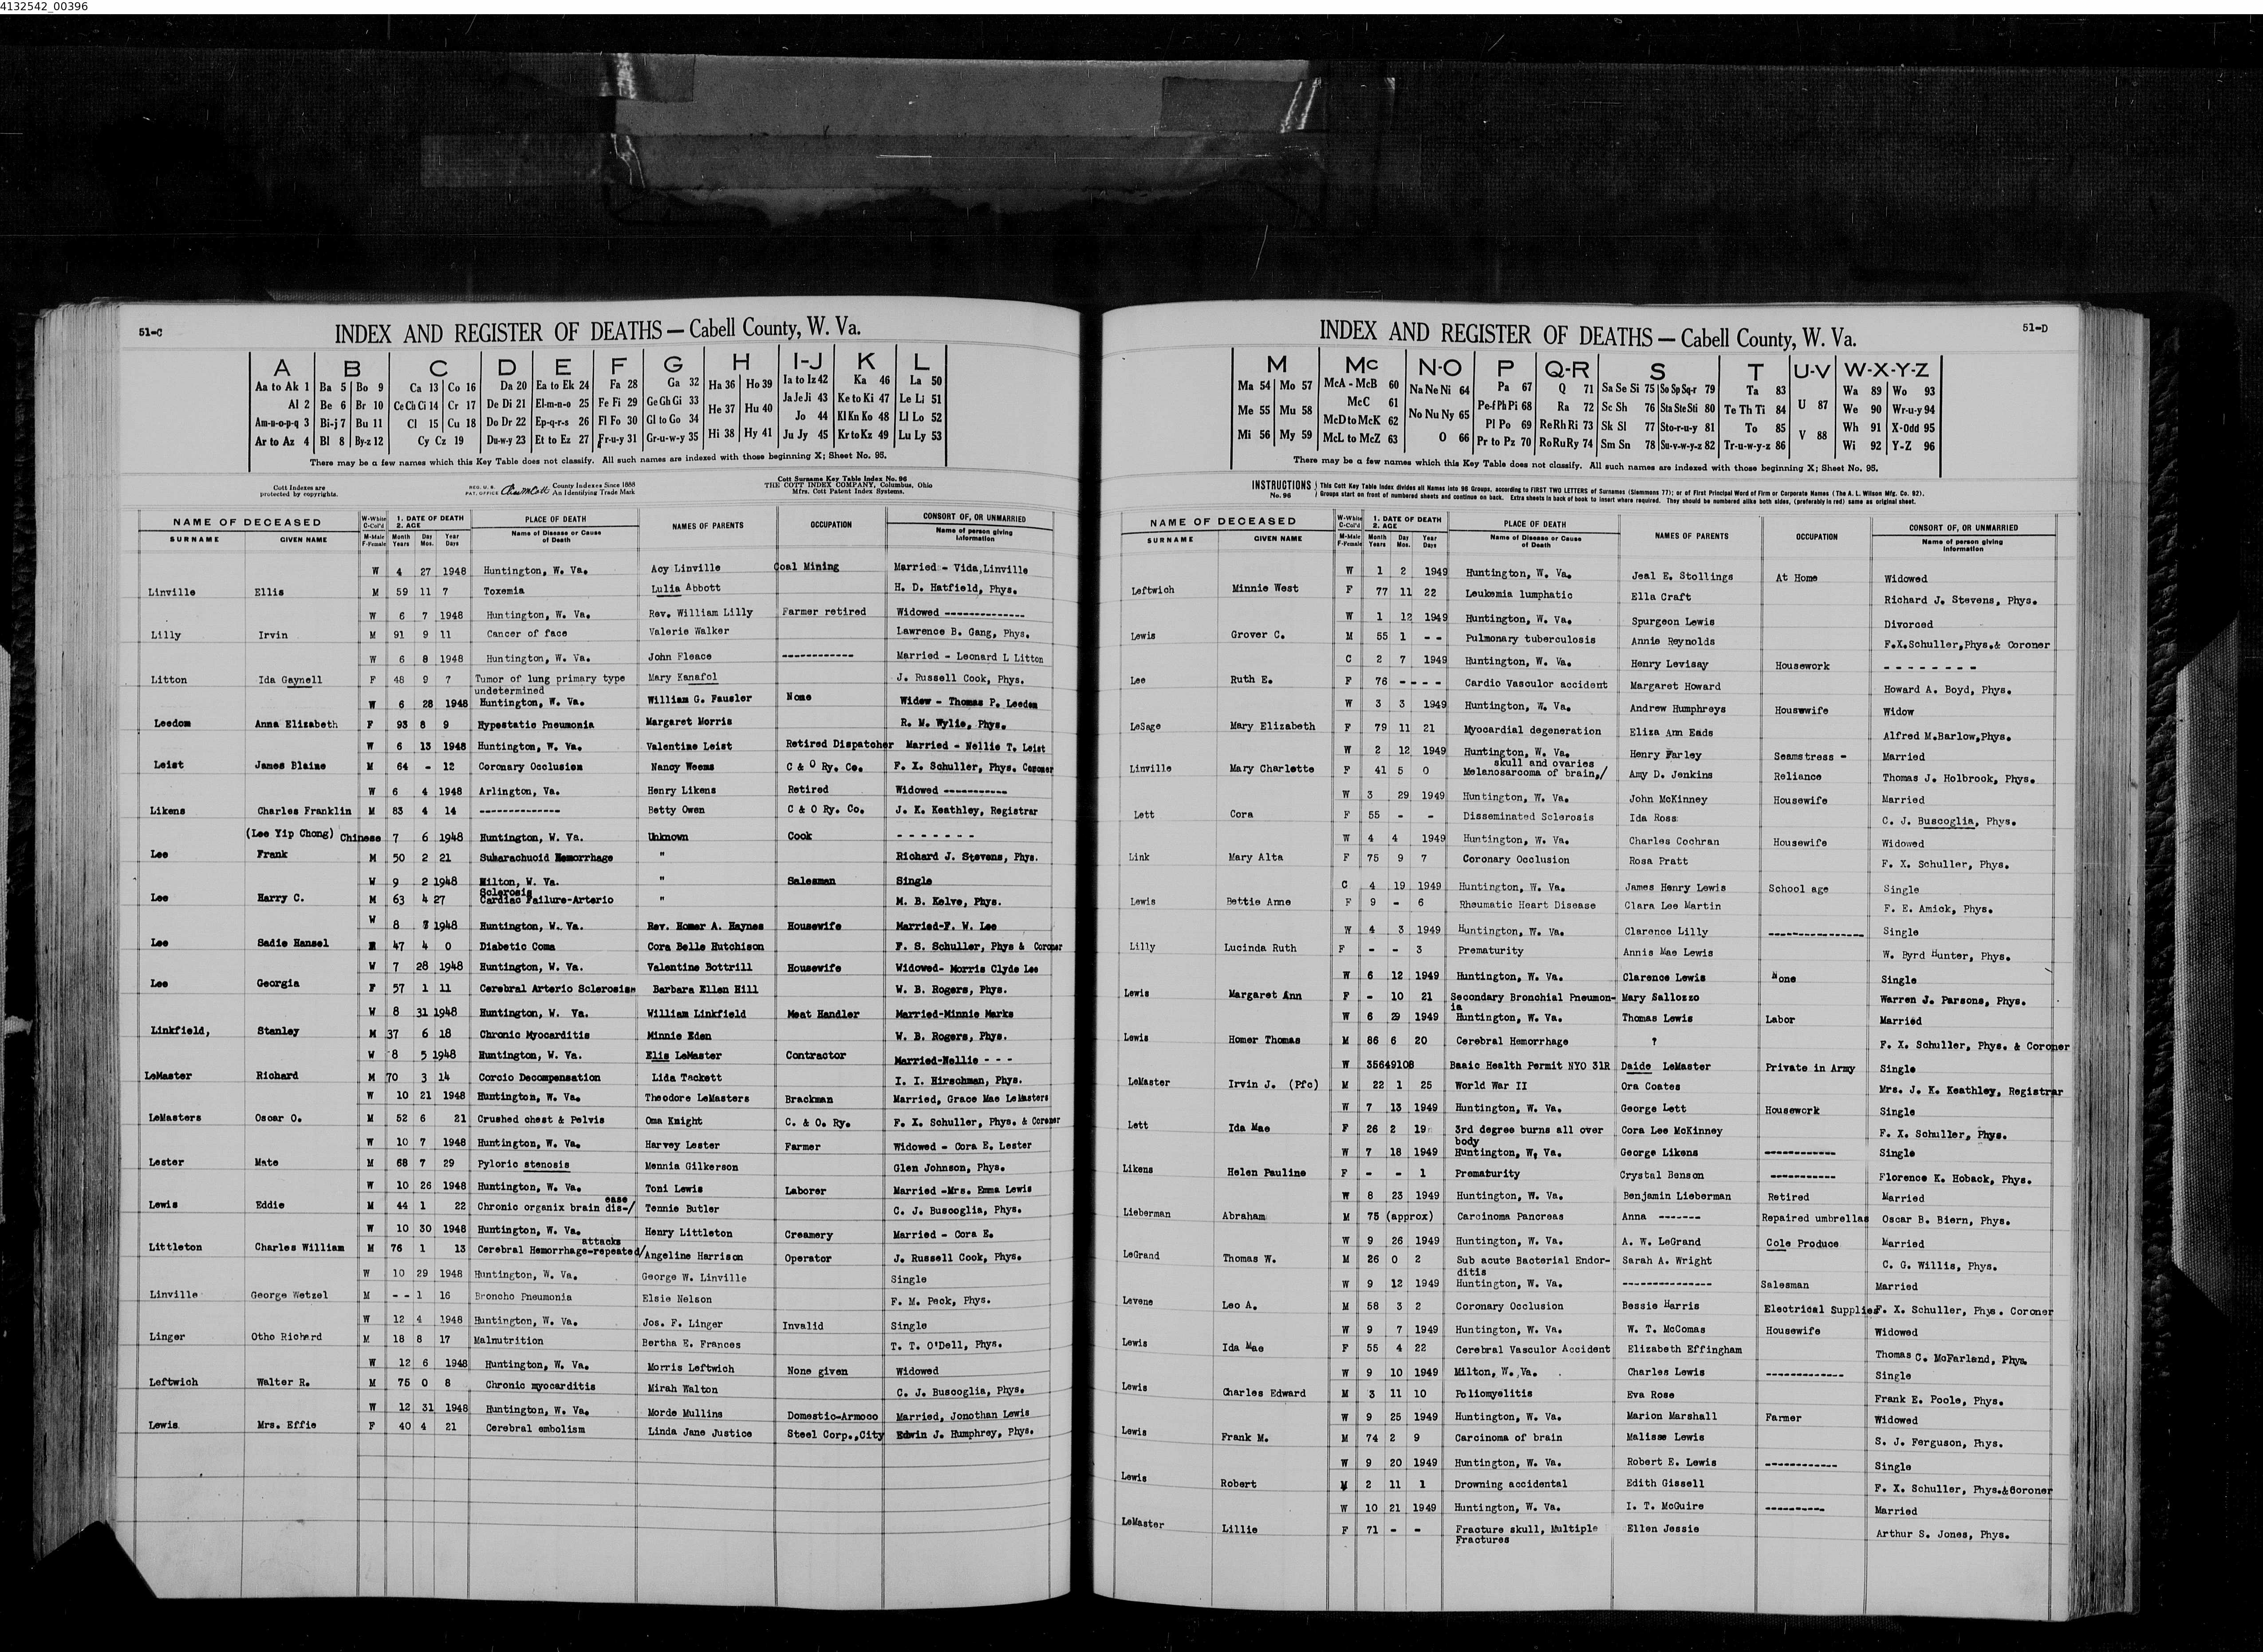 4132542_00396
51-C
INDEX AND REGISTER OF DEATHS — Cabell County, W. Va.
A B C D E F G H I-J K L
Aa to Ak 1 Ba 5 Bo 9 Ca 13 Co 16 Da 20 Ea to Ek 24 Fa 28 Ga 32 Ha 36 Ho 39 Ia to Iz 42 Ka 46 La 50
Al 2 Be 6 Br 10 Ce Ch Ci 14 Cr 17 De Di 21 El-m-n-o 25 Fe Fi 29 Ge Gh Gi 33 He 37 Hu 40 Ja Je Ji 43 Ke to Ki 47 Le Li 51
Am-n-o-p-q 3 Bi-j 7 Bu 11 Cl 15 Cu 18 Do Dr 22 Ep-q-r-s 26 Fl Fo 30 Gl to Go 34 Jo 44 Kl Kn Ko 48 Ll Lo 52
Ar to Az 4 Bl 8 By-z 12 Cy Cz 19 Du-w-y 23 Et to Ez 27 Fr-u-y 31 Gr-u-w-y 35 Hi 38 Hy 41 Ju Jy 45 Kr to Kz 49 Lu Ly 53
There may be a few names which this Key Table does not classify. All such names are indexed with those beginning X; Sheet No. 95.
Cott Indexes are protected by copyrights.
REG. U. S. PAT. OFFICE County Indexes Since 1888 An Identifying Trade Mark
Cott Surname Key Table Index No. 96
THE COTT INDEX COMPANY, Columbus, Ohio
Mfrs. Cott Patent Index Systems.
NAME OF DECEASED W-White C-Col'd 1. DATE OF DEATH 2. AGE PLACE OF DEATH NAMES OF PARENTS OCCUPATION CONSORT OF, OR UNMARRIED
SURNAME GIVEN NAME M-Male F-Female Month Years Day Mos. Year Days Name of Disease or Cause of Death Name of person giving Information
W 4 27 1948 Huntington, W. Va. Acy Linville Coal Mining Married - Vida,Linville
Linville Ellis M 59 11 7 Toxemia Lulia Abbott H. D. Hatfield, Phys.
W 6 7 1948 Huntington, W. Va. Rev. William Lilly Farmer retired Widowed --------------
Lilly Irvin M 91 9 11 Cancer of face Valerie Walker Lawrence B. Gang, Phys.
W 6 8 1948 Huntington, W. Va. John Fleace ------------ Married - Leonard L Litton
Litton Ida Gaynell F 48 9 7 Tumor of lung primary type Mary Kanafol J. Russell Cook, Phys.
undetermined
W 6 28 1948 Huntington, W. Va. William G. Fausler None Widow - Thomas P. Leedom
Leedom Anna Elizabeth F 93 8 9 Hypostatic Pneumonia Margaret Morris R. M. Wylie, Phys.
W 6 13 1948 Huntington, W. Va. Valentine Leist Retired Dispatcher Married - Nellie T. Leist
Leist James Blaine M 64 - 12 Coronary Occlusion Nancy Weems C & O Ry. Co. F. X. Schuller, Phys. Coroner
W 6 4 1948 Arlington, Va. Henry Likens Retired Widowed -----------
Likens Charles Franklin M 83 4 14 -------------- Betty Owen C & O Ry. Co. J. K. Keathley, Registrar
(Lee Yip Chong) Chinese 7 6 1948 Huntington, W. Va. Unknown Cook - - - - - - -
Lee Frank M 50 2 21 Subarachuoid Hemorrhage " Richard J. Stevens, Phys.
W 9 2 1948 Milton, W. Va. " Salesman Single
Sclerosis
Lee Harry C. M 63 4 27 Cardiac Failure-Arterio " M. B. Kelve, Phys.
W 8 7 1948 Huntington, W. Va. Rev. Homer A. Haynes Housewife Married-F. W. Lee
Lee Sadie Hansel 47 4 0 Diabetic Coma Cora Belle Hutchison F. S. Schuller, Phys & Coroner
W 7 28 1948 Huntington, W. Va. Valentine Bottrill Housewife Widowed- Morris Clyde Lee
Lee Georgia F 57 1 11 Cerebral Arterio Sclerosism Barbara Ellen Hill W. B. Rogers, Phys.
W 8 31 1948 Huntington, W. Va. William Linkfield Meat Handler Married-Minnie Marks
Linkfield, Stanley M 37 6 18 Chronic Myocarditis Minnie Eden W. B. Rogers, Phys.
W 8 5 1948 Huntington, W. Va. Elis LeMaster Contractor Married-Nellie - - -
LeMaster Richard M 70 3 14 Corcio Decompensation Lida Tackett I. I. Hirschman, Phys.
W 10 21 1948 Huntington, W. Va. Theodore LeMasters Brackman Married, Grace Mae LeMasters
LeMasters Oscar O. M 52 6 21 Crushed chest & Pelvis Oma Knight C. & O. Ry. F. X. Schuller, Phys. & Coroner
W 10 7 1948 Huntington, W. Va. Harvey Lester Farmer Widowed - Cora E. Lester
Lester Mate M 68 7 29 Pyloric stenosis Mennia Gilkerson Glen Johnson, Phys.
W 10 26 1948 Huntington, W. Va. Toni Lewis Laborer Married -Mrs. Emma Lewis
ease
Lewis Eddie M 44 1 22 Chronic organix brain dis-/ Tennie Butler C. J. Buscoglia, Phys.
W 10 30 1948 Huntington, W. Va. Henry Littleton Creamery Married - Cora E.
attacks
Littleton Charles William M 76 1 13 Cerebral Hemorrhage-repeated/ Angeline Harrison Operator J. Russell Cook, Phys.
W 10 29 1948 Huntington, W. Va. George W. Linville Single
Linville George Wetzel M - - 1 16 Broncho Pneumonia Elsie Nelson F. M. Peck, Phys.
W 12 4 1948 Huntington, W. Va. Jos. F. Linger Invalid Single
Linger Otho Richard M 18 8 17 Malnutrition Bertha E. Frances T. T. O'Dell, Phys.
W 12 6 1948 Huntington, W. Va. Morris Leftwich None given Widowed
Leftwich Walter R. M 75 0 8 Chronic myocarditis Mirah Walton C. J. Buscoglia, Phys.
W 12 31 1948 Huntington, W. Va. Morde Mullins Domestic-Armoco Married, Jonothan Lewis
Lewis Mrs. Effie F 40 4 21 Cerebral embolism Linda Jane Justice Steel Corp.,City Edwin J. Humphrey, Phys.
51-D
INDEX AND REGISTER OF DEATHS — Cabell County, W. Va.
M Mc N-O P Q-R S T U-V W-X-Y-Z
Ma 54 Mo 57 McA - McB 60 Na Ne Ni 64 Pa 67 Q 71 Sa Se Si 75 So Sp Sq-r 79 Ta 83 U 87 Wa 89 Wo 93
Me 55 Mu 58 McC 61 No Nu Ny 65 Pe-f Ph Pi 68 Ra 72 Sc Sh 76 Sta Ste Sti 80 Te Th Ti 84 V 88 We 90 Wr-u-y 94
Mi 56 My 59 McD to McK 62 O 66 Pl Po 69 Re Rh Ri 73 Sk Sl 77 Sto-r-u-y 81 To 85 Wh 91 X-Odd 95
McL to McZ 63 Pr to Pz 70 Ro Ru Ry 74 Sm Sn 78 Su-v-w-y-z 82 Tr-u-w-y-z 86 Wi 92 Y-Z 96
There may be a few names which this Key Table does not classify. All such names are indexed with those beginning X; Sheet No. 95.
INSTRUCTIONS No. 96 This Cott Key Table Index divides all Names into 96 Groups, according to FIRST TWO LETTERS of Surnames (Slemmons 77); or of First Principal Word of Firm or Corporate Names (The A. L. Wilson Mfg. Co. 92).
Groups start on front of numbered sheets and continue on back. Extra sheets in back of book to insert where required. They should be numbered alike both sides, (preferably in red) same as original sheet.
NAME OF DECEASED W-White C-Col'd 1. DATE OF DEATH 2. AGE PLACE OF DEATH NAMES OF PARENTS OCCUPATION CONSORT OF, OR UNMARRIED
SURNAME GIVEN NAME M-Male F-Female Month Years Day Mos. Year Days Name of Disease or Cause of Death Name of person giving Information
W 1 2 1949 Huntington, W. Va. Jeal E. Stollings At Home Widowed
Leftwich Minnie West F 77 11 22 Leukemia lumphatic Ella Craft Richard J. Stevens, Phys.
W 1 12 1949 Huntington, W. Va. Spurgeon Lewis Divorced
Lewis Grover C. M 55 1 - - Pulmonary tuberculosis Annie Reynolds F.X.Schuller,Phys.& Coroner
C 2 7 1949 Huntington, W. Va. Henry Levisay Housework - - - - - - - -
Lee Ruth E. F 76 - - - - Cardio Vasculor accident Margaret Howard Howard A. Boyd, Phys.
W 3 3 1949 Huntington, W. Va. Andrew Humphreys Houswwife Widow
LeSage Mary Elizabeth F 79 11 21 Myocardial degeneration Eliza Ann Eads Alfred M.Barlow,Phys.
W 2 12 1949 Huntington, W. Va. Henry Farley Seamstress - Married
skull and ovaries
Linville Mary Charlette F 41 5 0 Melanosarcoma of brain,/ Amy D. Jenkins Reliance Thomas J. Holbrook, Phys.
W 3 29 1949 Huntington, W. Va. John McKinney Housewife Married
Lett Cora F 55 - - Disseminated Sclerosis Ida Ross C. J. Buscoglia, Phys.
W 4 4 1949 Huntington, W. Va. Charles Cochran Housewife Widowed
Link Mary Alta F 75 9 7 Coronary Occlusion Rosa Pratt F. X. Schuller, Phys.
C 4 19 1949 Huntington, W. Va. James Henry Lewis School age Single
Lewis Bettie Anne F 9 - 6 Rheumatic Heart Disease Clara Lee Martin F. E. Amick, Phys.
W 4 3 1949 Huntington, W. Va. Clarence Lilly ---------------- Single
Lilly Lucinda Ruth F - - 3 Prematurity Annis Mae Lewis W. Byrd Hunter, Phys.
W 6 12 1949 Huntington, W. Va. Clarence Lewis None Single
Lewis Margaret Ann F - 10 21 Secondary Bronchial Pneumon- Mary Sallozzo Warren J. Parsons, Phys.
ia
W 6 29 1949 Huntington, W. Va. Thomas Lewis Labor Married
Lewis Homer Thomas M 86 6 20 Cerebral Hemorrhage ? F. X. Schuller, Phys. & Coroner
W 35649108 Basic Health Permit NYO 31R Daide LeMaster Private in Army Single
LeMaster Irvin J. (Pfc) M 22 1 25 World War II Ora Coates Mrs. J. K. Keathley, Registrar
W 7 13 1949 Huntington, W. Va. George Lett Housework Single
Lett Ida Mae F 26 2 19 3rd degree burns all over Cora Lee McKinney F. X. Schuller, Phys.
body
W 7 18 1949 Huntington, W, Va. George Likens ------------ Single
Likens Helen Pauline F - - 1 Prematurity Crystal Benson ----------- Florence K. Hoback, Phys.
W 8 23 1949 Huntington, W. Va. Benjamin Lieberman Retired Married
Lieberman Abraham M 75 (approx) Carcinoma Pancreas Anna ------- Repaired umbrellas Oscar B. Biern, Phys.
W 9 26 1949 Huntington, W. Va. A. W. LeGrand Cole Produce Married
LeGrand Thomas W. M 26 0 2 Sub acute Bacterial Endor- Sarah A. Wright C. G. Willis, Phys.
ditis
W 9 12 1949 Huntington, W. Va. --------------- Salesman Married
Levene Leo A. M 58 3 2 Coronary Occlusion Bessie Harris Electrical Supplies F. X. Schuller, Phys. Coroner
W 9 7 1949 Huntington, W. Va. W. T. McComas Housewife Widowed
Lewis Ida Mae F 55 4 22 Cerebral Vasculor Accident Elizabeth Effingham Thomas C. McFarland, Phys.
W 9 10 1949 Milton, W. Va. Charles Lewis ------------- Single
Lewis Charles Edward M 3 11 10 Poliomyelitis Eva Rose Frank E. Poole, Phys.
W 9 25 1949 Huntington, W. Va. Marion Marshall Farmer Widowed
Lewis Frank M. M 74 2 9 Carcinoma of brain Malisse Lewis S. J. Ferguson, Phys.
W 9 20 1949 Huntington, W. Va. Robert E. Lewis ------------ Single
Lewis Robert M 2 11 1 Drowning accidental Edith Gissell F. X. Schuller, Phys.&Coroner
W 10 21 1949 Huntington, W. Va. I. T. McGuire ---------- Married
LeMaster Lillie F 71 - - Fracture skull, Multiple Ellen Jessie Arthur S. Jones, Phys.
Fractures